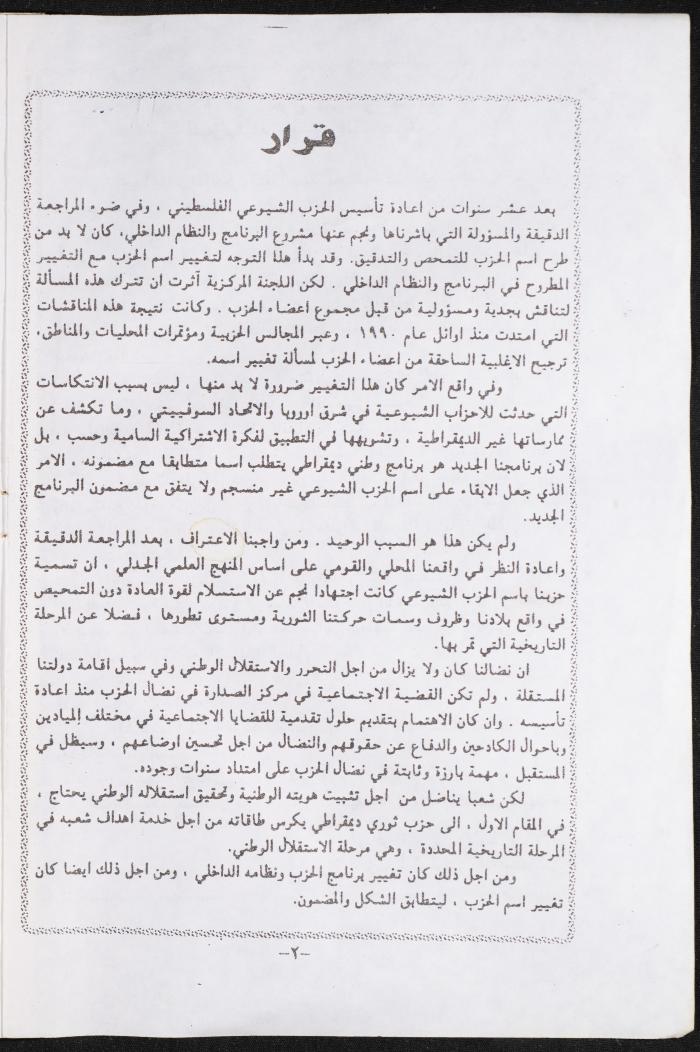 قرار
بعد عشر سنوات من اعادة تأسيس الحزب الشيوعي الفلسطيني ، وفي ضوء المراجعة
الدقيقة والمسؤولة التي باشرناها ونجم عنها مشروع البرنامج والنظام الداخلي، كان لا بد من
طرح اسم الحزب للتمحص والتدقيق. وقد بدأ هذا التوجه لتغيير اسم الحزب مع التغيير
المطروح في البرنامج والنظام الداخلي . لكن اللجنة المركزية آثرت ان تترك هذه المسألة
لتناقش بجدية ومسؤولية من قبل مجموع اعضاء الحزب . وكانت نتيجة هذه المناقشات
التي امتدت منذ اوائل عام ١٩٩٠ ، وعبر المجالس الحزبية ومؤتمرات المحليات والمناطق،
ترجيح الاغلبية الساحقة من اعضاء الحزب لمسألة تغيير اسمه.
وفي واقع الامر كان هذا التغيير ضرورة لا بد منها ، ليس بسبب الانتكاسات
التي حدثت للاحزاب الشيوعية في شرق اوروبا والاتحاد السوفييتي ، وما تكشف عن
ممارساتها غير الديمقراطية ، وتشويهها في التطبيق لفكرة الاشتراكية السامية وحسب ، بل
لان برنامجنا الجديد هو برنامج وطني ديمقراطي يتطلب اسما متطابقا مع مضمونه ، الامر
الذي جعل الابقاء على اسم الحزب الشيوعي غير منسجم ولا يتفق مع مضمون البرنامج
الجديد.
ولم يكن هذا هو السبب الوحيد . ومن واجبنا الاعتراف ، بعد المراجعة الدقيقة
واعادة النظر في واقعنا المحلي والقومي على اساس المنهج العلمي الجدلي ، ان تسمية
حزبنا باسم الحزب الشيوعي كانت اجتهادا نجم عن الاستسلام لقوة العادة دون التمحيص
في واقع بلادنا وظروف وسمات حركتنا الثورية ومستوى تطورها ، فضلا عن المرحلة
التاريخية التي تمر بها.
ان نضالنا كان ولا يزال من اجل التحرر والاستقلال الوطني وفي سبيل اقامة دولتنا
المستقلة . ولم تكن القضية الاجتماعية في مركز الصدارة في نضال الحزب منذ اعادة
تأسيسه . وان كان الاهتمام بتقديم حلول تقدمية للقضايا الاجتماعية في مختلف الميادين
وباحوال الكادحين والدفاع عن حقوقهم والنضال من اجل تحسين اوضاعهم ، وسيظل في
المستقبل ، مهمة بارزة وثابتة في نضال الحزب على امتداد سنوات وجوده.
لكن شعبا يناضل من اجل تثبيت هويته الوطنية وتحقيق استقلاله الوطني يحتاج ،
في المقام الاول ، الى حزب ثوري ديمقراطي يكرس طاقاته من اجل خدمة اهداف شعبه في
المرحلة التاريخية المحددة ، وهي مرحلة الاستقلال الوطني.
ومن اجل ذلك كان تغيير برنامج الحزب ونظامه الداخلي ، ومن اجل ذلك ايضا كان
تغيير اسم الحزب ، ليتطابق الشكل والمضمون.
-٢-